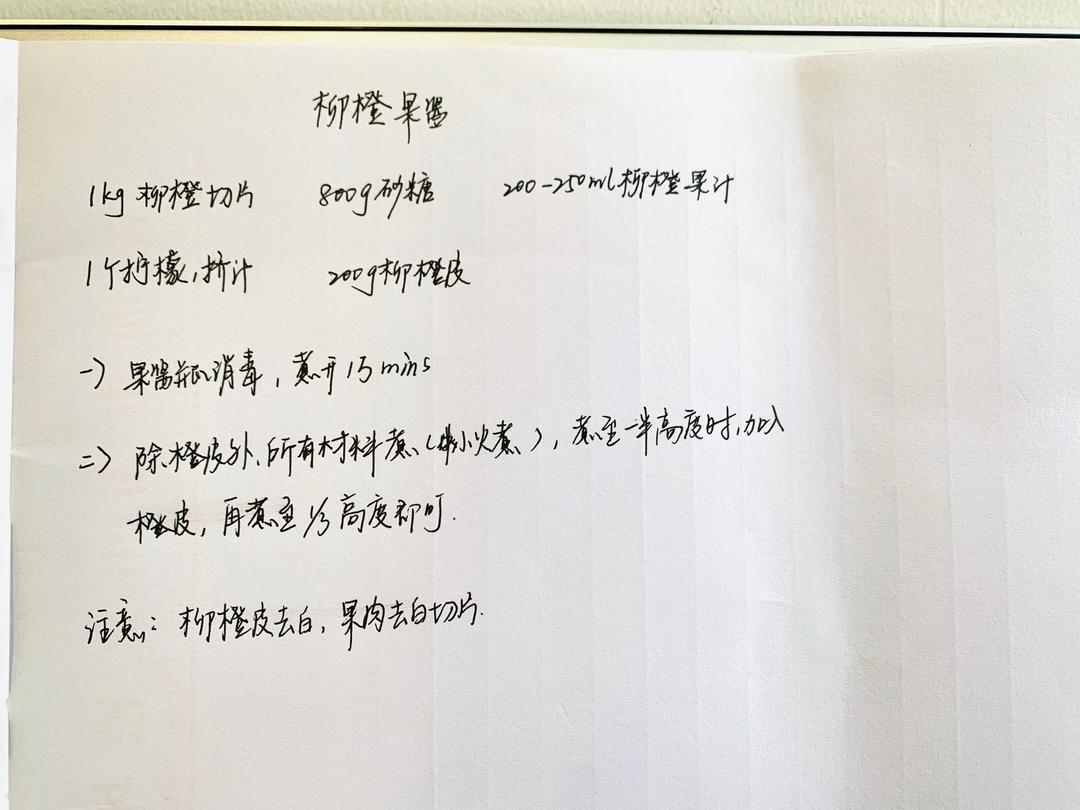 柳橙果酱
1kg 柳橙切片 800g砂糖 200-250ml柳橙果汁
1个柠檬,挤汁 200g柳橙皮
一) 果酱瓶消毒,煮开15mins
二) 除橙皮外,所有材料煮(中小火煮),煮至一半高度时,加入
橙皮,再煮至1/3高度即可.
注意:柳橙皮去白,果肉去白切片.